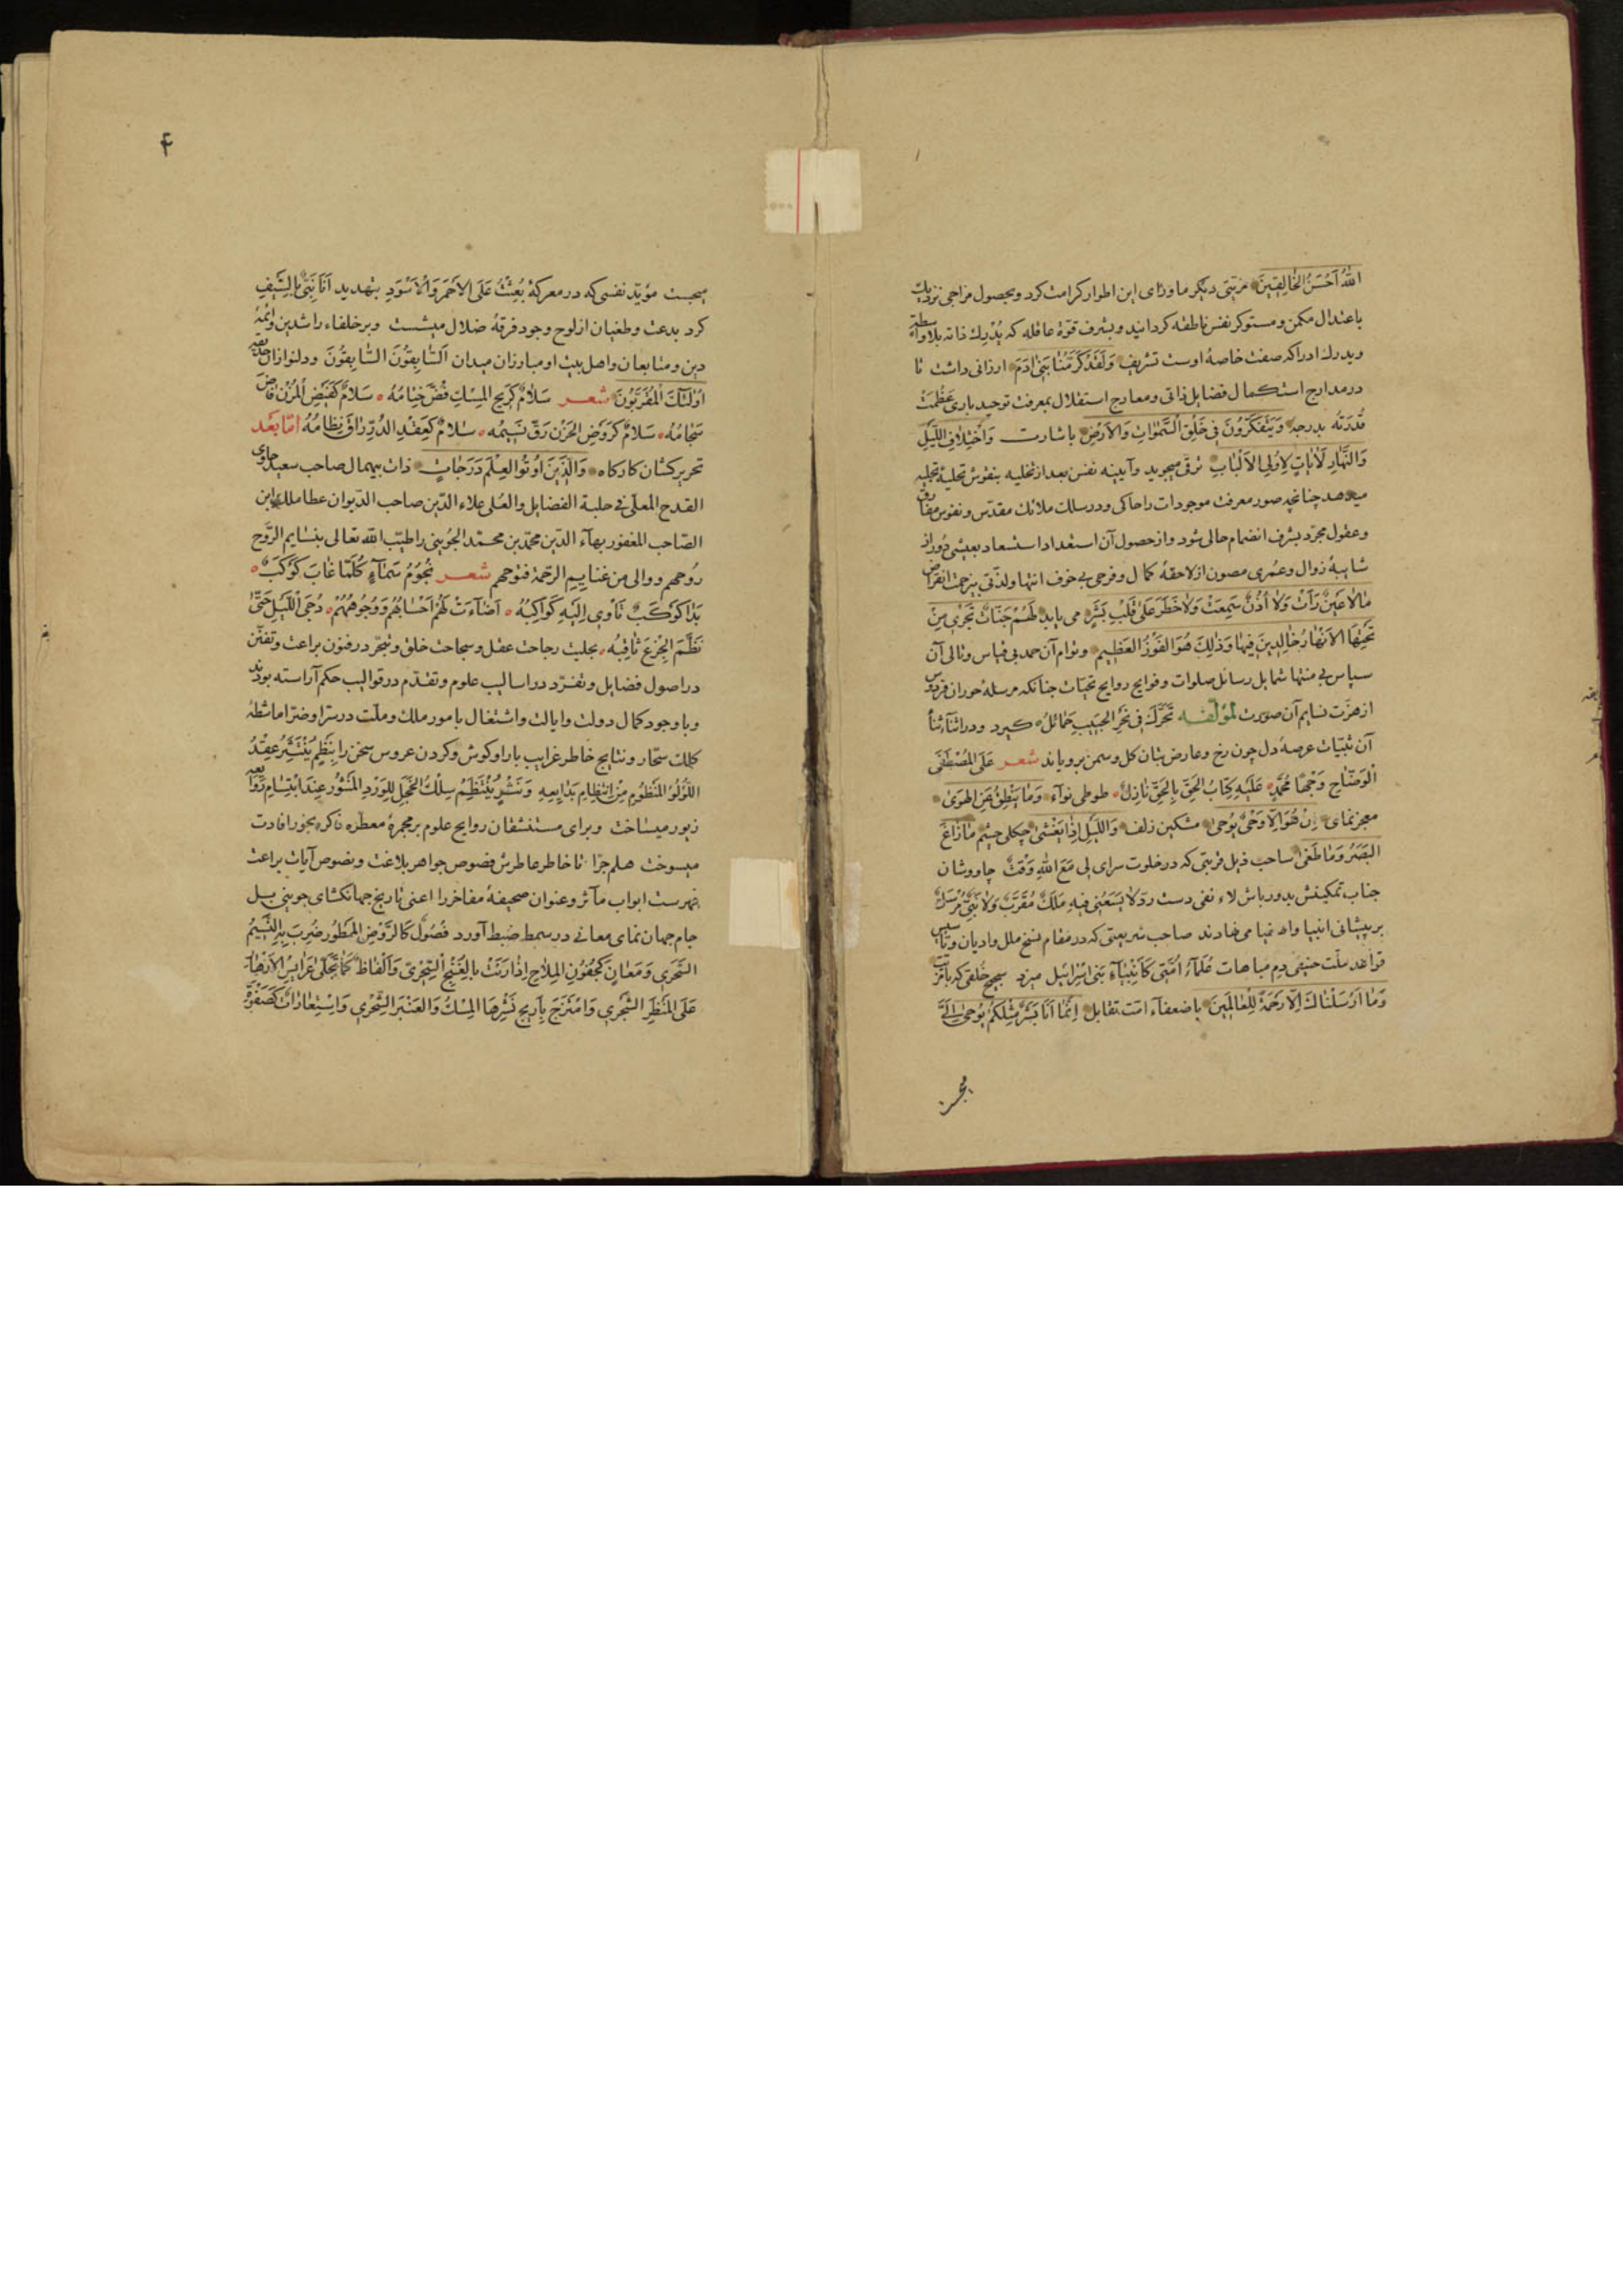 اللّٰهُ اَحْسَنُ الْخَالِقِینَ مزیتی دیکر ماورای این اطوار کرامت کرد و بحصول مزاجی نزدیک
باعتدال مکمن و مستوکر نفس ناطقه کردانید و بشرف قوّۀ عاقله که یُدْرِك ذاته بلا واسطة
ویدرك ادراکه صفت خاصۀ اوست تشریف وَلَقَدْ کَرَّمْنَا بَنِیْ اٰدَمَ ارزانی داشت تا
در مدارج استکمال فضایل ذاتی و معارج استقلال بمعرفت توحید باری عَظُمَتْ
قُدْرَتُه بدرجۀ وَیَتَفَکَّرُونَ فِی خَلْقِ السَّمٰوَاتِ وَالْاَرْضِ باشارت وَاخْتِلٰافِ اللَّیْلِ
وَالنَّهَارِ لَاٰیَاتٍ لِاُولِی الْاَلْبَابِ ترقی میجوید و آیینه نفس بعد از تخلیه بنقوش تحلیۀ تجلیه
میدهد چنانچه صور معرفت موجودات را حاکی و در سلك ملائك مقدّس و نفوس مفارق
و عقول مجرّد بشرف انضمام حالی شود و از حصول آن استعداد استسعاد بعیشی دور از
شایبۀ زوال و عمری مصون از لاحقۀ کمال و فرحی بی خوف انتها و لذّتی بی زحمت انقراض
مَا لَا عَیْنٌ رَأَتْ وَلَا أُذُنٌ سَمِعَتْ وَلَا خَطَرَ عَلیٰ قَلْبِ بَشَرٍ می یابد لَهُمْ جَنَّاتٌ تَجْرِی مِنْ
تَحْتِهَا الْاَنْهَارُ خَالِدِینَ فِیهَا وَذٰلِكَ هُوَ الْفَوْزُ الْعَظِیم و توام آن حمد بی قیاس و تالی آن
سپاس بی منتها شمایل رسائل صلوات و فوایح روایح تحیّات چنانکه مرسلۀ حوران فردوس
از هزّت نسایم آن صورت لمؤلّفه تَحَرَّكَ فِی نَحْرِ الحَبِیبِ حَمَائلُ کیرد و در اثناء ثناء
آن تحیّات عرصۀ دل چون رخ و عارض بتان کل و سمن برویاند شعر عَلَی الْمُصْطَفَی
الْوَضَّاحِ وَجْهًا مُحَمَّدٍ عَلَیْهِ کِتَابُ الحَقِّ بِالحَقِّ نَازِلٌ طوطی نوآء وَمَا یَنْطِقُ عَنِ الْهَوَیٰ
معجز نمای اِنْ هُوَ اِلَّا وَحْیٌ یُوحیٰ مشکین زلف وَاللَّیْلِ اِذَا یَغْشیٰ چکلی چشم مَا زَاغَ
الْبَصَرُ وَمَا طَغیٰ صاحب ذیل قربتی که در خلوت سرای لی مَعَ اللهِ وَقْتٌ چاووشان
جناب تمکینش بدور باش لاء نفی دست ردّ لَا یَسَعُنِی فِیهِ مَلَكٌ مُقَرَّبٌ وَلَا نَبِیٌّ مُرْسَلٌ
بر پیشانی انبیا و اصفیا می نهادند صاحب شریعتی که در مقام نسخ ملل و ادیان و تأسیس
قواعد ملّت حنیفی دم مباهات عُلَمَآءُ اُمَّتِی کَاَنْبِیَآءِ بَنِی اِسْرَائِیل میزد سجیح خُلقی که بآیت
وَمَا اَرْسَلْنَاكَ اِلَّا رَحْمَةً لِلْعَالَمِینَ با ضعفآء امّت تقابل اِنَّمَا اَنَا بَشَرٌ مِثْلُکُمْ یُوحیٰ اِلَیَّ
۴
میجست مؤیّد نفسی که در معرکۀ بُعِثْتُ عَلَی الْاَحْمَرِ وَالْاَسْوَدِ بتهدید اَنَا نَبِیٌّ بِالسَّیْفِ
کرد بدعت و طغیان از لوح وجود فرقۀ ضلال میشست و بر خلفاء راشدین و ائمۀ
دین و متابعان و اهل بیت او مبارزان میدان اَلسَّابِقُونَ السَّابِقُونَ و دلنوازان
اُولٰئِكَ الْمُقَرَّبُونَ شعر سَلَامٌ کَرِیحِ الْمِسْكِ فُضَّ خِتَامُهُ سَلَامٌ کَفَیْضِ الْمُزْنِ فَاضَ
سَجَامُهُ سَلَامٌ کَرَوْضِ الْحَزْنِ رَقَّ نَسِیمُه سَلَامٌ کَعِقْدِ الدُّرِّ رَاقَ نِظَامُهُ امّا بَعْد
تحریر کشان کارکاه وَالَّذِینَ اُوتُوا الْعِلْمَ دَرَجَاتٍ ذات بیهمال صاحب سعید حاوی
القدح المعلّی فی حلبة الفضایل والعُلی علاء الدّین صاحب الدّیوان عطا ملك ابن
الصّاحب المغفور بهآء الدّین محمّد بن محمّد الجوینی را طیّب الله تعالی بنسایم الرَّوح
رُوحهم و والی من غنایم الرحمة فتوحهم شعر نُجُومُ سَمَآءٍ کُلَّمَا غَابَ کَوْکَبٌ
بَدَا کَوْکَبٌ تَأْوِی اِلَیْهِ کَوَاکِبُهُ اَضَآءَتْ لَهُمْ اَحْسَابُهُمْ وَوُجُوهُهُمْ دُجَی اللَّیْلِ حَتّیٰ
نَظَّمَ الجِزْعَ ثَاقِبُهُ بحلیت رجاحت عقل و سجاحت خلق و تبحّر در فنون براعت و تفنّن
در اصول فضایل و تفرّد در اسالیب علوم و تقدّم در قوالب حکم آراسته بودند
و با وجود کمال دولت و ایالت و اشتغال بامور ملك و ملّت در سرّا و ضرّا ماشطۀ
کلك سحّار و نتایج خاطر غرایب بار او کوش و کردن عروس سخن را بِنَظْمٍ یُنْتَثَرُ عِقْدُ
اللُّؤْلُؤِ الْمَنْظُومِ مِنْ اِنْتِظَامِ بَدَایِعِهِ وَنَثْرٍ یُنْتَظَمُ سِلْكُ الْخَجَلِ لِلْوَرْدِ الْمَنْثُورِ عِنْدَ ابْتِسَامِ رَوَایِعِهِ
زیور میساخت و برای مستنشقان روایح علوم بر مجمرۀ معطّره ذاکره بخور افادت
میسوخت هلم جرّا تا خاطر عاطرش فصوص جواهر بلاغت و نصوص آیات براعت
فهرست ابواب مآثر و عنوان صحیفۀ مفاخر را اعنی تاریخ جهانکشای جوینی بل
جام جهان نمای معانی در سمط ضبط آورد فُصُولٌ کَالرَّوْضِ الْمَمْطُورِ ضُرِبَ بِهِ النَّسِیمُ
السَّحَرِی وَمَعَانٍ کَجُفُونِ الْمِلَاحِ اِذَا رَنَتْ بِالْغُنْجِ السِّحْرِیِّ وَاَلْفَاظٌ کَمَا تَجَلّیٰ عَرَایِسُ الْاَزْهَارِ
عَلَی الْمَنْظَرِ الشَّجَرِی وَامْتَزَجَ بِاَرِیجِ نَشْرِهَا الْمِسْكُ وَالْعَنْبَرُ الشِّحْرِی وَاسْتِعَارَاتٌ کَصَفْوَةِ